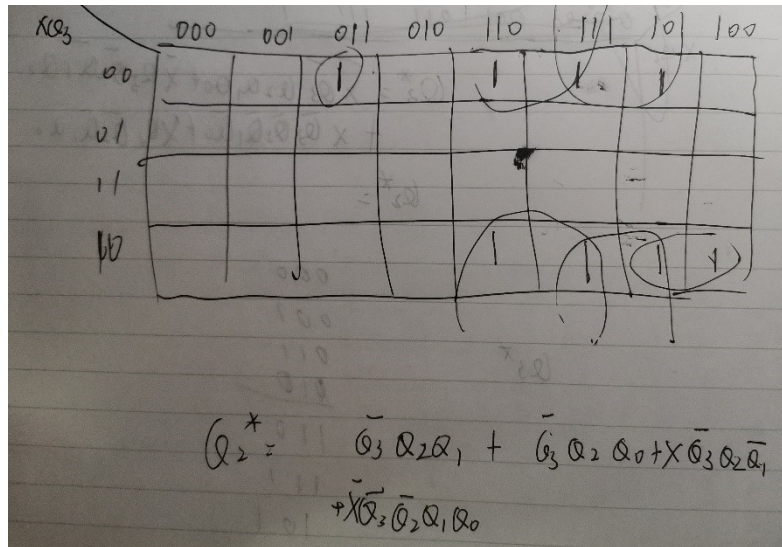 XQ₃ 000 001 011 010 110 111 101 100
00 1 1 1 1
01
11
10 1 1 1 1
Q₂* = Q̄₃Q₂Q₁ + Q̄₃Q₂Q₀ + XQ̄₃Q₂Q̄₁
+ X̄Q̄₃Q̄₂Q₁Q₀